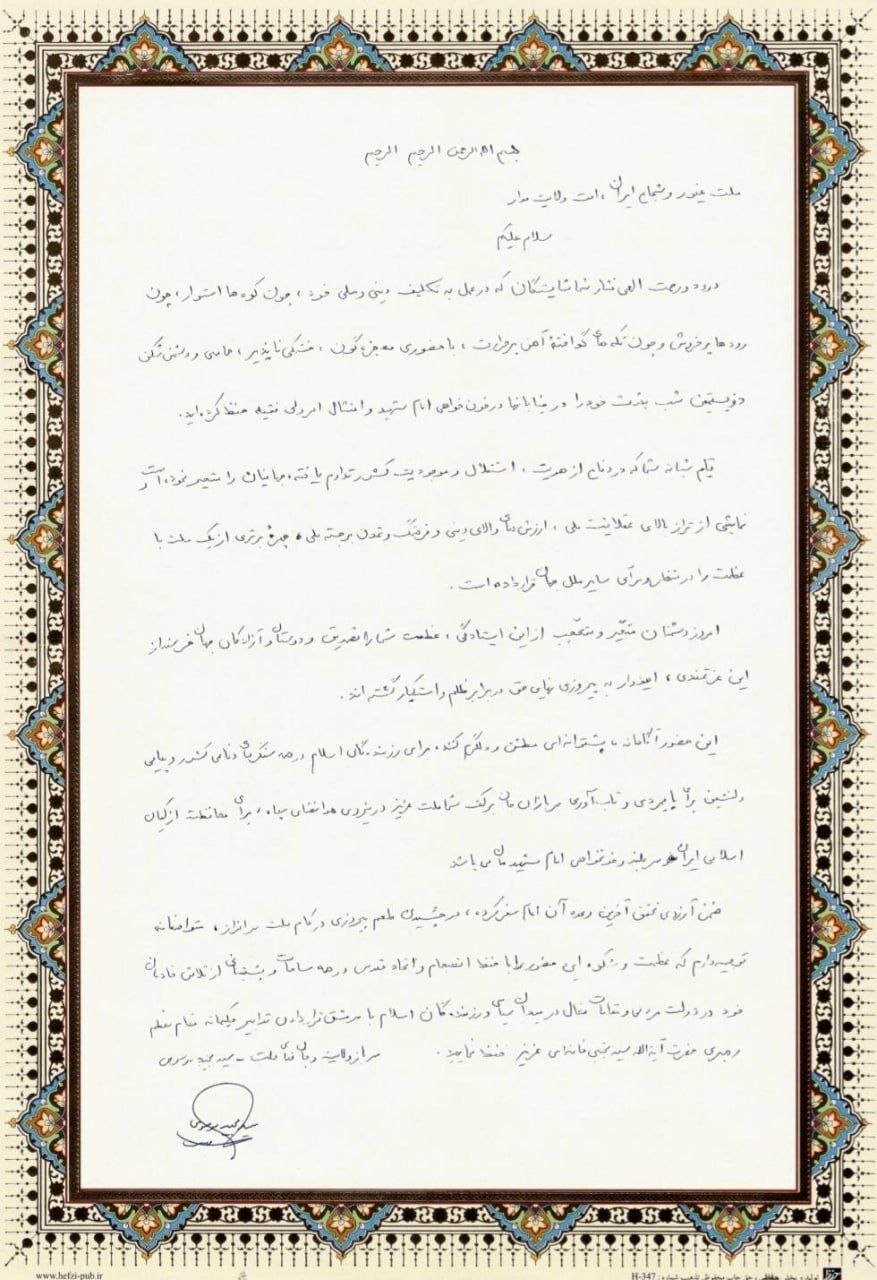 بسم الله الرحمن الرحیم
ملت غیور و شجاع ایران، امت ولایت مدار
سلام علیکم
درود و رحمت الهی نثار شما شایستگان که در عمل به تکلیف دینی و ملی خود، چون کوه ها استوار، چون
رودها پرخروش و چون تکه های گداختهٔ آهن پرحرارت، با حضوری معجزه گون، خستگی ناپذیر، حماسی و دشمن شکن
دویستمین شب بعثت خود را در خیابانها در خون خواهی امام شهید و امتثال امر ولی فقیه حفظ کرده اید.
قیام شبانه شما که در دفاع از هویت، استقلال و موجودیت کشور تداوم یافته، جهانیان را متحیر نموده است و
نمایشی از تراز بالای عقلانیت ملی، ارزش های والای دینی و فرهنگ و تمدن برجسته ملی، چهرهٔ برتری از یک ملت با
عظمت را در منظر سایر ملل جهان قرار داده است.
امروز دشمنان متحیر و متعجب از این ایستادگی، عظمت شما را تصدیق و دوستان و آزادگان جهان خرسند از
این عزتمندی، امیدوار به پیروزی نهایی حق در برابر ظلم و استکبار گشته اند.
این حضور آگاهانه، پشتوانه ای مطمئن و دلگرم کننده برای رزمندگان اسلام در همه سنگرهای دفاعی کشور و پیامی
دلنشین برای پایمردی و تاب آوری سربازان جان برکف شما ملت عزیز در نیروی هوافضای سپاه، برای محافظت از کیان
اسلامی ایران سربلند و خونخواهی امام شهیدمان می باشد
ضمن آرزوی تحقق آخرین وعده آن امام سفر کرده، در چشیدن طعم پیروزی در کام ملت سرافراز، متواضعانه
توصیه دارم که عظمت و شکوه این حضور را با حفظ انسجام و اتحاد مقدس در همه ساحات و پشتیبانی از تلاش خادمان
خود در دولت مردمی و فعال در میدان سیاسی و رزمندگان اسلام با سرمشق قراردادن تدابیر حکیمانه مقام معظم
رهبری حضرت آیة الله سید مجتبی خامنه ای عزیز حفظ نمایید. سرباز ولایت و جان فدای ملت - سید مجید موسوی
سید مجید موسوی
www.hefzi-pub.ir
H-347